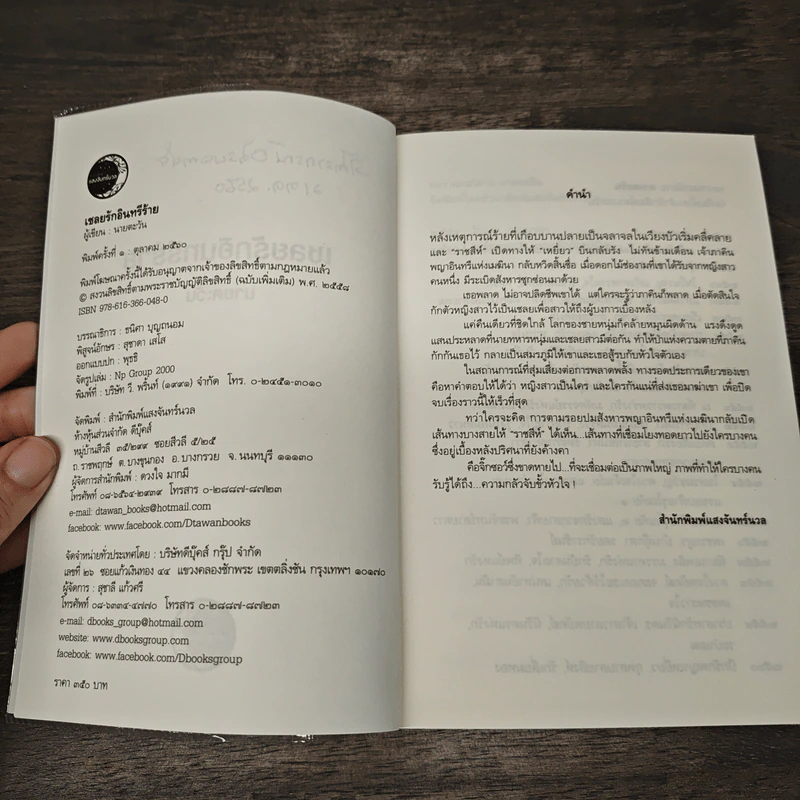 แสงจันทร์นวล
เชลยรักอินทรีร้าย
ผู้เขียน : นายตะวัน
พิมพ์ครั้งที่ ๑ : ตุลาคม ๒๕๖๐
พิมพ์โฆษณาครั้งนี้ได้รับอนุญาตจากเจ้าของลิขสิทธิ์ตามกฎหมายแล้ว
© สงวนลิขสิทธิ์ตามพระราชบัญญัติลิขสิทธิ์ (ฉบับเพิ่มเติม) พ.ศ. ๒๕๕๘
ISBN 978-616-366-048-0
บรรณาธิการ : ธนิดา บุญถนอม
พิสูจน์อักษร : สุชาดา เสโส
ออกแบบปก : พุธธิ
จัดรูปเล่ม : Np Group 2000
พิมพ์ที่ : บริษัท วี. พริ้นท์ (๑๙๙๑) จำกัด โทร. ๐-๒๔๕๑-๓๐๑๐
จัดพิมพ์ : สำนักพิมพ์แสงจันทร์นวล
ห้างหุ้นส่วนจำกัด ดีบุ๊คส์
หมู่บ้านสิวลี ๓๕/๒๙๙ ซอยสิวลี ๕/๒๕
ถ.ราชพฤกษ์ ต.บางขุนกอง อ.บางกรวย จ.นนทบุรี ๑๑๑๓๐
ผู้จัดการสำนักพิมพ์ : ดวงใจ มากมี
โทรศัพท์ ๐๘-๖๕๓๔-๒๙๓๙ โทรสาร ๐-๒๘๘๗-๘๗๒๓
e-mail: dtawan_books@hotmail.com
facebook: www.facebook.com/Dtawanbooks
จัดจำหน่ายทั่วประเทศโดย : บริษัทดีบุ๊คส์ กรุ๊ป จำกัด
เลขที่ ๒๖ ซอยแก้วเงินทอง ๔๔ แขวงคลองชักพระ เขตตลิ่งชัน กรุงเทพฯ ๑๐๑๗๐
ผู้จัดการ : สุชาลี แก้วศรี
โทรศัพท์ ๐๘-๖๓๓๔-๔๗๗๐ โทรสาร ๐-๒๘๘๗-๘๗๒๓
e-mail: dbooks_group@hotmail.com
website: www.dbooksgroup.com
facebook: www.facebook.com/Dbooksgroup
ราคา ๓๕๐ บาท
คำนำ
หลังเหตุการณ์ร้ายที่เกือบบานปลายเป็นจลาจลในเวียงบัวเริ่มคลี่คลาย
และ "ราชสีห์" เปิดทางให้ "เหยี่ยว" บินกลับรัง ไม่ทันข้ามเดือน เจ้าภาคิน
พญาอินทรีแห่งเมฆินา กลับหวิดสิ้นชื่อ เมื่อดอกไม้ช่องามที่เขาได้รับจากหญิงสาว
คนหนึ่ง มีระเบิดสังหารซุกซ่อนมาด้วย
เธอพลาด ไม่อาจปลิดชีพเขาได้ แต่ใครจะรู้ว่าภาคินก็พลาด เมื่อตัดสินใจ
กักตัวหญิงสาวไว้เป็นเชลยเพื่อสาวให้ถึงผู้บงการเบื้องหลัง
แค่คืนเดียวที่ชิดใกล้ โลกของชายหนุ่มก็คล้ายหมุนผิดด้าน แรงดึงดูด
แสนประหลาดที่นายทหารหนุ่มและเชลยสาวมีต่อกัน ทำให้ป่าแห่งความตายที่ภาคิน
กักกันเธอไว้ กลายเป็นสมรภูมิให้เขาและเธอสู้รบกับหัวใจตัวเอง
ในสถานการณ์ที่สุ่มเสี่ยงต่อการพลาดพลั้ง ทางรอดประการเดียวของเขา
คือหาคำตอบให้ได้ว่า หญิงสาวเป็นใคร และใครกันแน่ที่ส่งเธอมาฆ่าเขา เพื่อปิด
จบเรื่องราวนี้ให้เร็วที่สุด
ทว่าใครจะคิด การตามรอยปมสังหารพญาอินทรีแห่งเมฆินากลับเปิด
เส้นทางบางสายให้ "ราชสีห์" ได้เห็น...เส้นทางที่เชื่อมโยงทอดยาวไปยังใครบางคน
ซึ่งอยู่เบื้องหลังปริศนาที่ยังค้างคา
คือจิ๊กซอว์ซึ่งขาดหายไป...ที่จะเชื่อมต่อเป็นภาพใหญ่ ภาพที่ทำให้ใครบางคน
รับรู้ได้ถึง...ความกลัวจับขั้วหัวใจ !
สำนักพิมพ์แสงจันทร์นวล